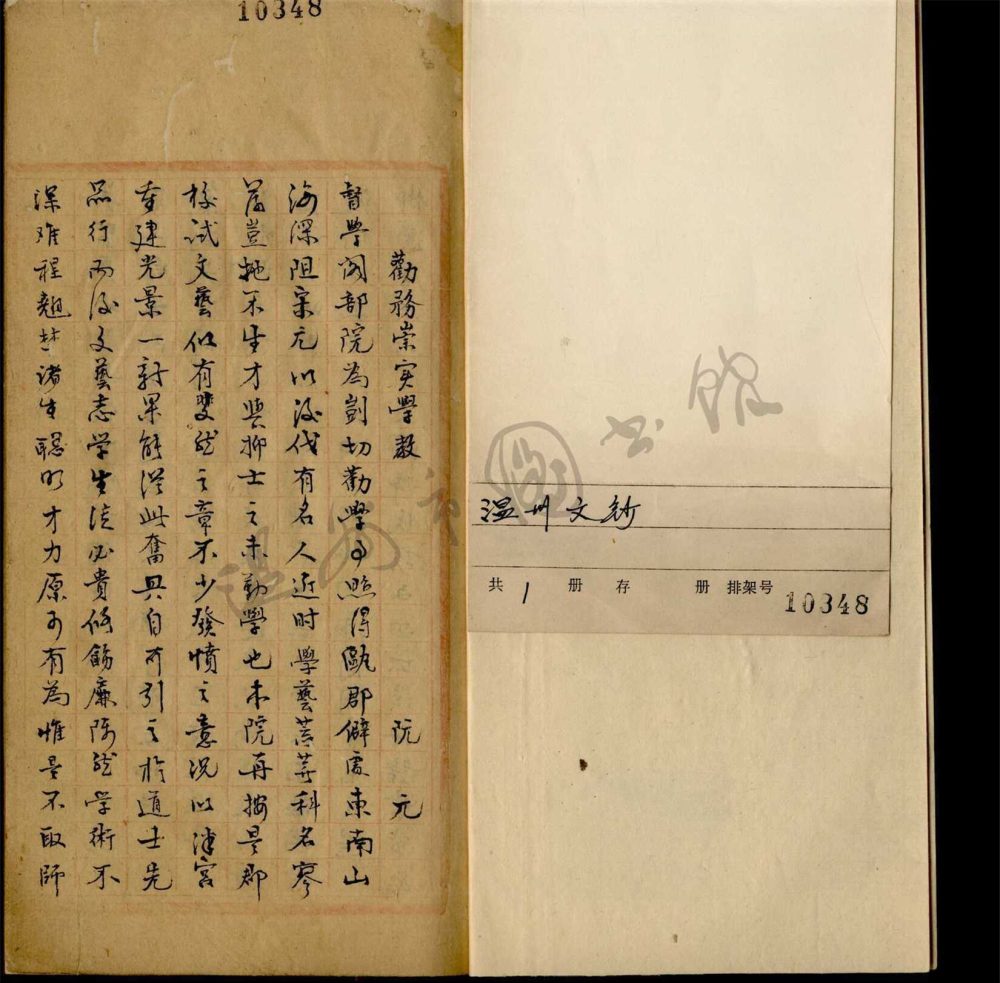 10348
溫州文鈔
共 1 册 存 册 排架号 10348
溫州市圖书館
勸務崇实學教 阮元
督學閣部院為剴切勸學事照得甌郡僻處東南山
海深阻宋元以後代有名人近时學藝荒蕪科名寥
落豈地不生才與抑士之未勤學也本院再按是郡
校试文藝似有斐然之章不少發憤之意况以泮宮
重建光景一新果能從此奮興自可引之於道士先
品行而後文藝志学生徒必貴修飭廉隅然學術不
深难程翹楚诸生聪明才力原可有為惟是不取師